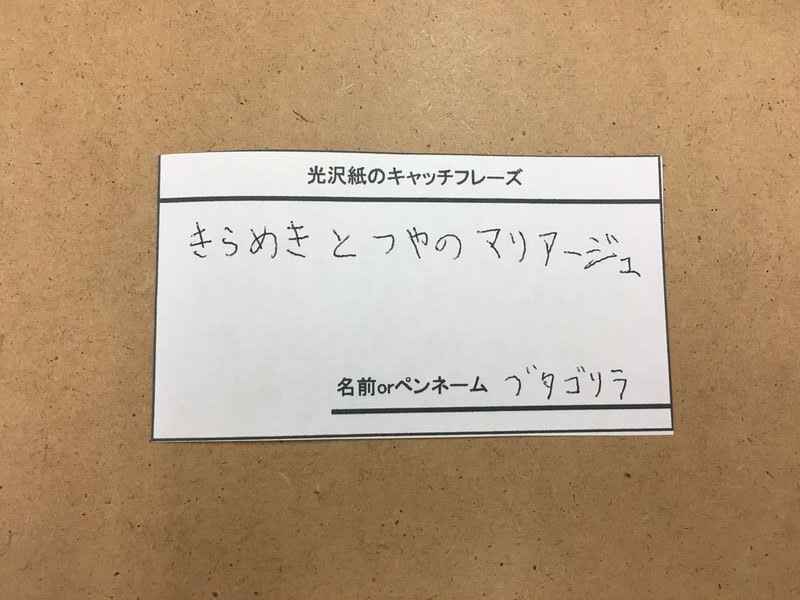 光沢紙のキャッチフレーズ
きらめきとつやのマリアージュ
名前orペンネーム ブタゴリラ